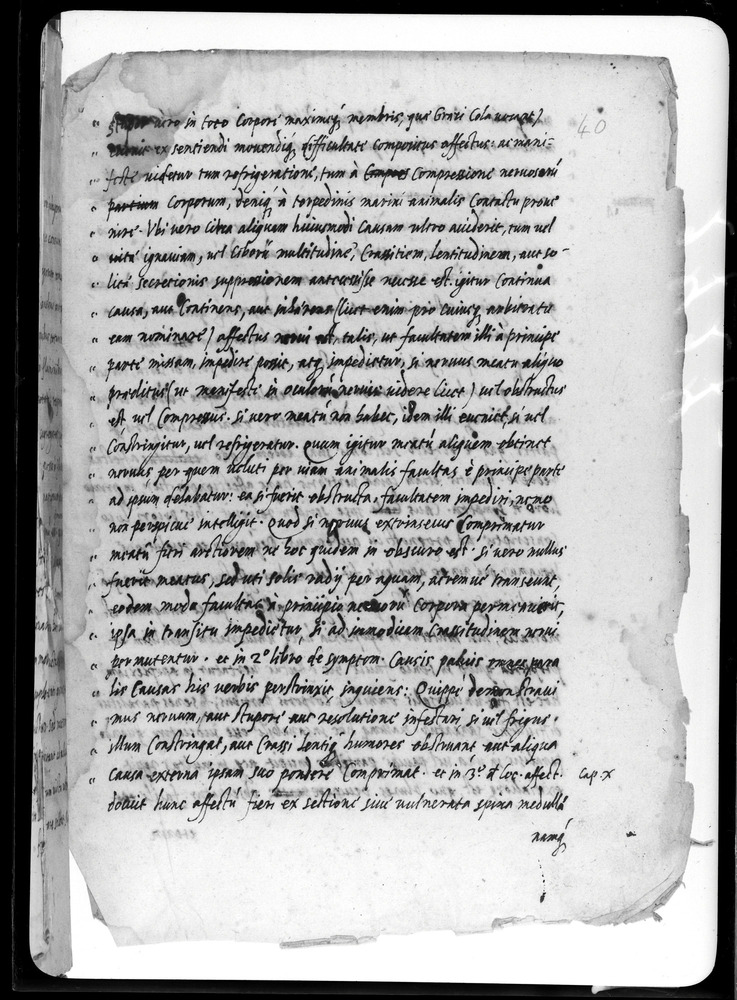 40
" vero in toto Corpore maximeq́; membris, quæ Græci Cola vocant)
" ex sentiendi movendiq́; difficultate Compositus affectus: ac mani-
" festè videtur tum refrigeratione, tum à Compres Compressione nervosorũ
" partium Corporum, deniq́; à torpedinis marini animalis Contactu prove
" nire. Vbi vero Citra aliquam huiusmodi Causam ultro acciderit, tum vel
" vitę ignaviam, vel Ciborũ multitudinẽ, Crassitiem, lentitudinem, aut so-
" litę secretionis suppressionem antecessisse necesse est. igitur Continua
" causa, aut Continens, aut inhærens (licet enim pro cuiusq́; arbitratu
" eam nominare) affectus nervi est, talis, ut facultatem illi à principe
" parte missam, impedire possit, atq́; impedietur, si nervus meatu aliquo
" præditus (ut manifestè in oculorũ nervis videre licet) vel obstructus
" est, vel Compressus. si vero meatũ non habet, idem illi eveniet, si vel
" Constringitur, vel refrigeratur. quum igitur meatũ aliquem obtinet
" nervus, per quem veluti per viam animalis facultas è principe parte
" ad ipsum delabatur: ea si fuerit obstructa, facultatem impediri, nemo
" non perspicuè intelligit. Quod si nervus extrinsecus Comprimatur
" meatũ fieri arctiorem ne hoc quidem in obscuro est. si vero nullus
" fuerit meatus, sed uti solis radij per aquam, aeremuè transeunt,
" eodem modo facultas à principio nervorũ Corpora permeaverit,
" ipsa in transitu impedietur, si ad immodicam Crassitudinem nervi
" permutentur. et in 2º libro de symptom. Causis
" lis Causas his verbis perstrinxit, inquiens: Quippè demonstravi
" mus nervum, aut stupore, aut resolutione infestari, si vel frigus
" illum Constringat, aut Crassi lentiq́; humores obstruant aut aliqua
" causa externa ipsam suo pondere Comprimat. et in 3º de loc. affect. Cap. x
docuit hunc affectũ fieri ex sectione sive vulnerata spinæ medullâ
namq́;